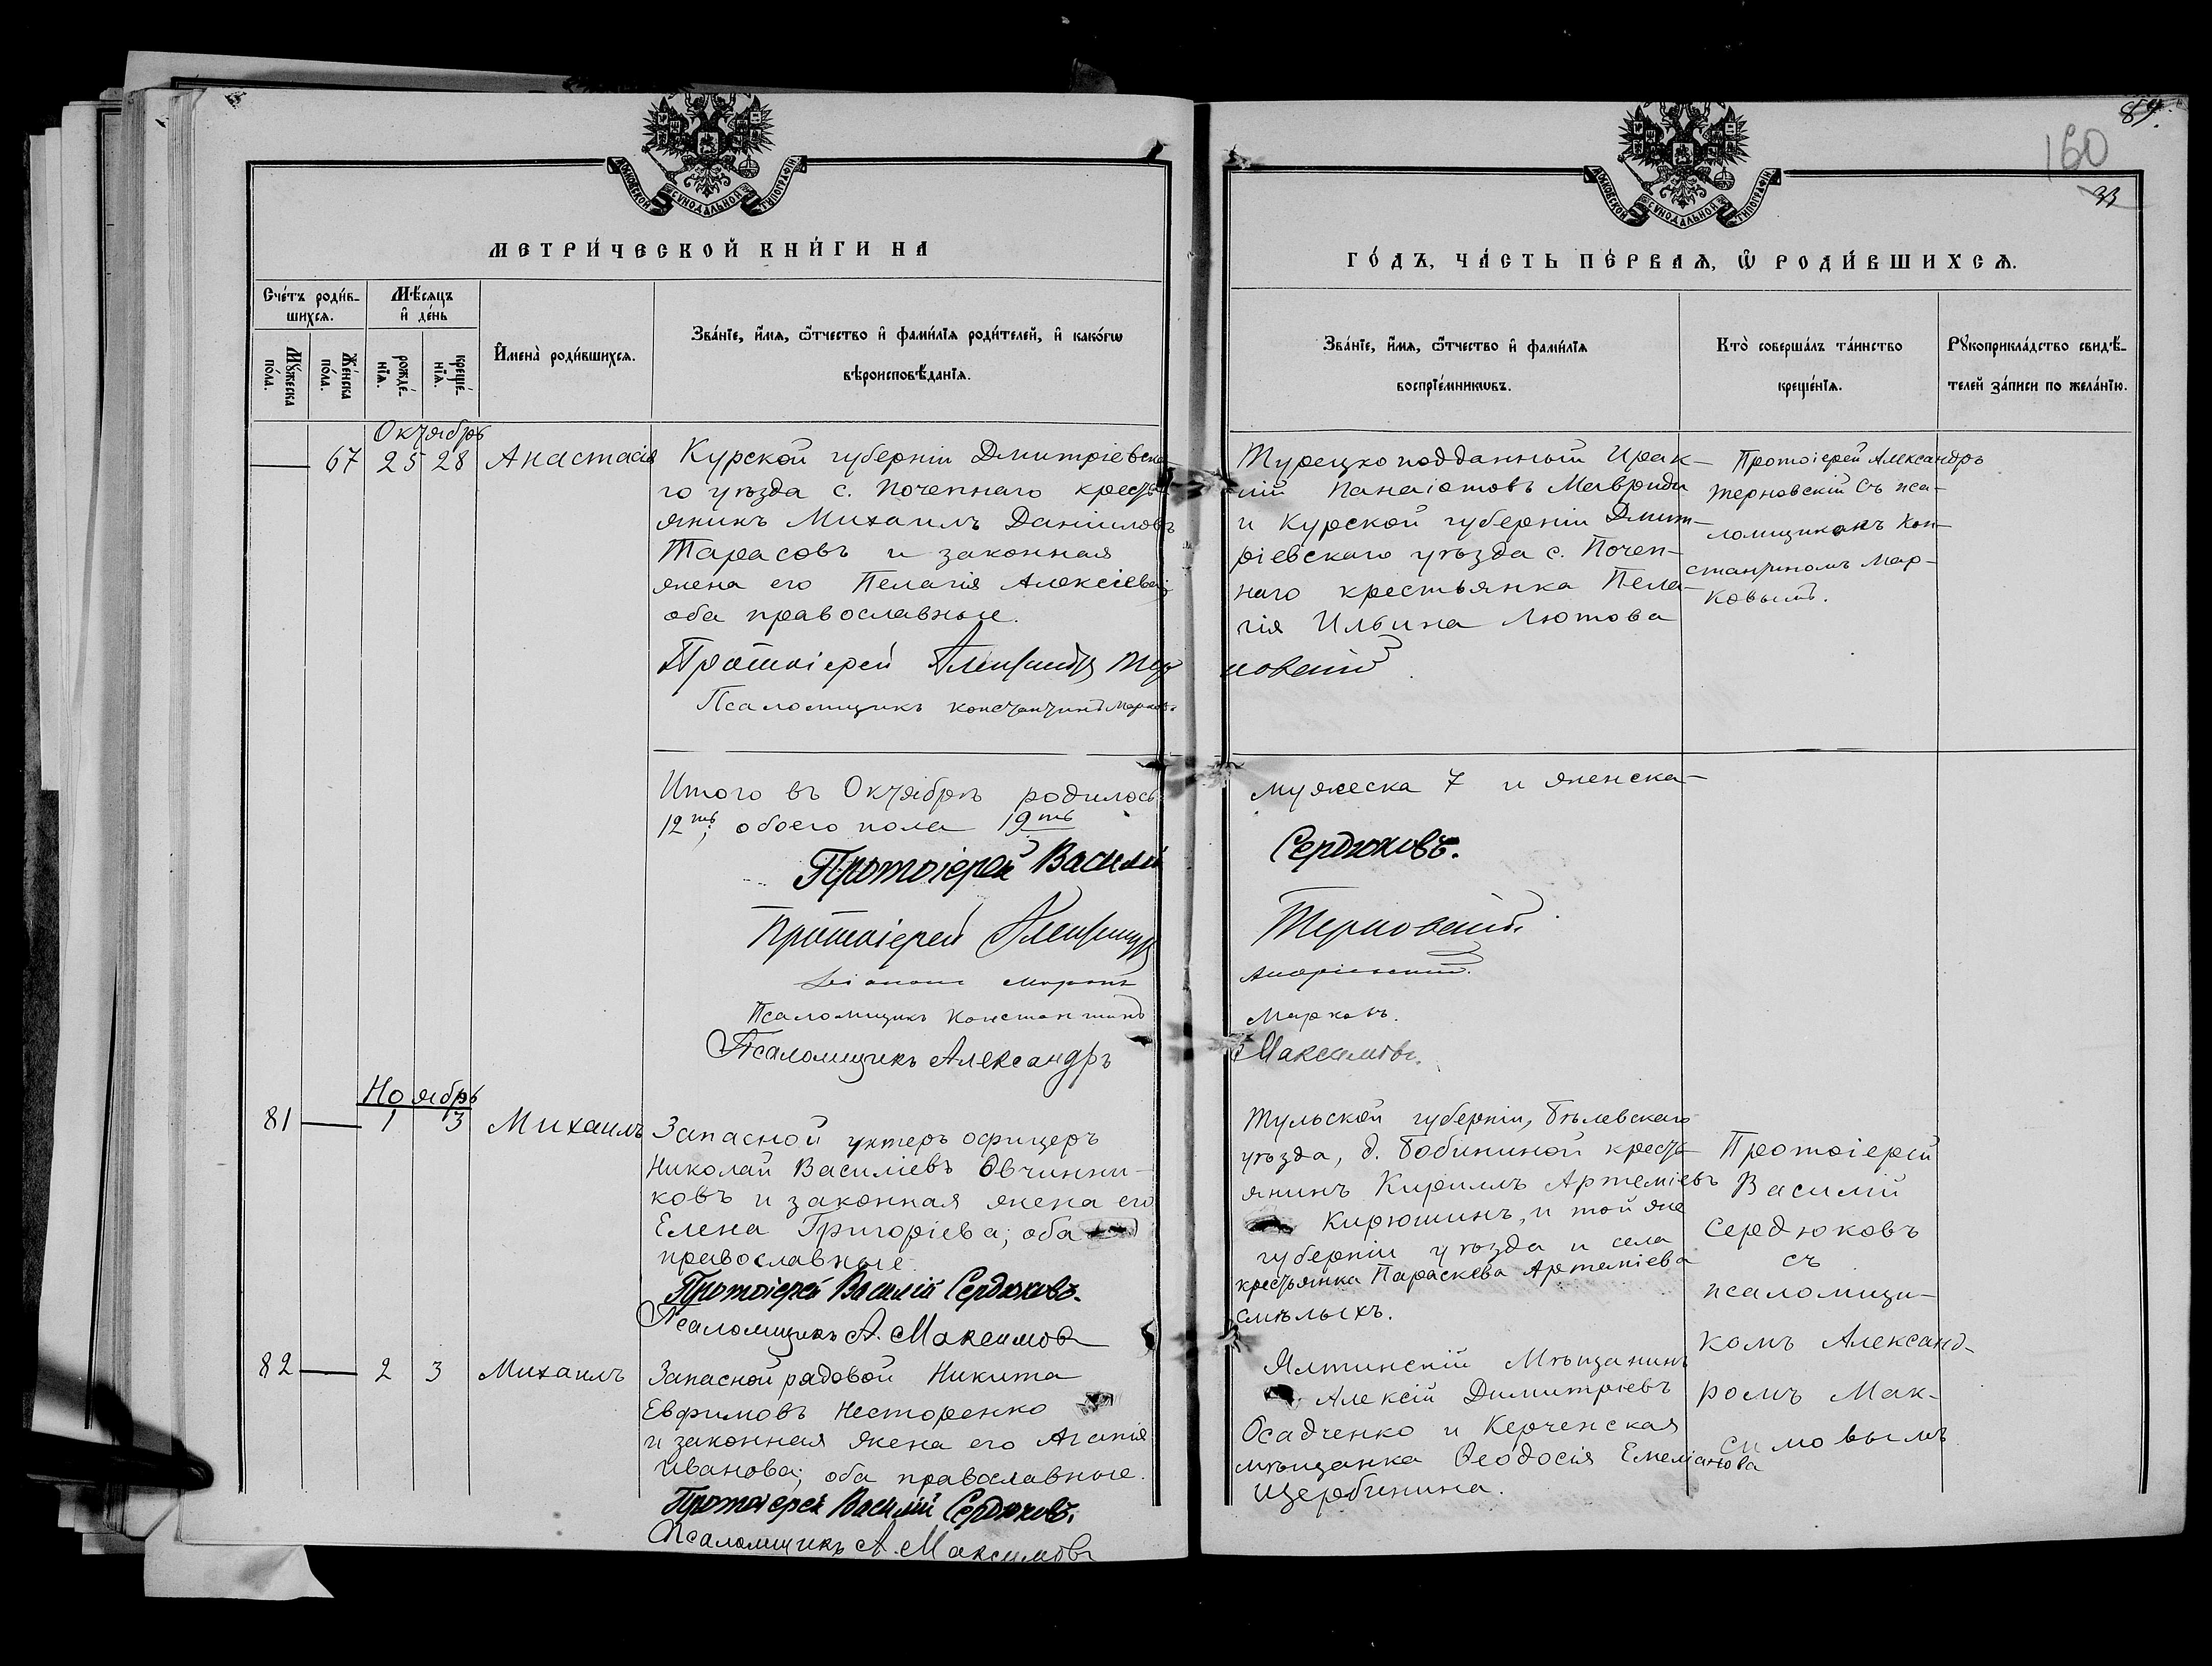 89.
160
33
МОСКОВСКОЙ СѴНОДАЛЬНОЙ ТИПОГРАФІИ
МЕТРИ́ЧЕСКОЙ КНИ́ГИ НА
Сче́тъ роди́в-
шихся.
Мѣ́сяцъ
и҆ де́нь
Мꙋ́жеска
по́ла.
Же́нска
по́ла.
рожде́-
нїѧ.
креще́-
нїѧ.
И҆мена̀ роди́вшихсѧ.
Зва́нїе, и҆́мѧ, ѿтчество и҆ фами́лїѧ роди́телей, и҆ како́гѡ
вѣроисповѣ́данїѧ.
Октябрь
67 25 28 Анастасія
Курской губерніи Дмитріевска
го уѣзда с. Почепнаго кресть
янинъ Михаилъ Даніиловъ
Тарасовъ и законная
жена его Пелагія Алексіева;
оба православные.
Протоіерей Александръ Тер
Псаломщикъ Константинъ Марковъ
Итого въ Октябрѣ родилось
12ть; обоего пола 19ть
Протоіерей Василій
Протоіерей Александръ
Діаконъ
Псаломщикъ Константинъ
Псаломщикъ Александръ
Ноябрь
81 1 3 Михаилъ
Запасной унтеръ офицеръ
Николай Василіевъ Овчинни-
ковъ и законная жена его
Елена Григоріева; оба
православные.
Протоіерей Василій Сердюковъ.
Псаломщикъ А. Максимовъ
82 2 3 Михаилъ
Запасной рядовой Никита
Евфимовъ Несторенко
и законная жена его Агапія
Иванова; оба православные.
Протоіерей Василій Сердюковъ.
Псаломщикъ А. Максимовъ
МОСКОВСКОЙ СѴНОДАЛЬНОЙ ТИПОГРАФІИ
ГО́ДЪ, ЧА́СТЬ ПЕ́РВАѦ, Ѡ҆ РОДИ́ВШИХСѦ.
Зва́нїе, и҆́мѧ, ѿтчество и҆ фами́лїѧ
воспрїе́мникѡвъ.
Кто̀ соверша́лъ та́инство
креще́нїѧ.
Рꙋкоприкла́дство свидѣ́-
телей за́писи по жела́нїю.
Турецкоподданный Ирак-
лій Панаіотовъ Мавриди
и Курской губерніи Дмит-
ріевскаго уѣзда с. Почеп-
наго крестьянка Пела-
гія Ильина Лютова
новскій
Протоіерей Александръ
Терновскій съ пса-
ломщикомъ Кон-
стантиномъ Мар-
ковымъ.
мужеска 7 и женска-
Сердюковъ.
Терновскій.
Марковъ.
Максимовъ.
Тульской губерніи, Бѣлевскаго
уѣзда, д. Бобининой кресть-
янинъ Кириллъ Артеміевъ
Кирюшинъ, и той же
губерніи уѣзда и села
крестьянка Параскева Артеміева
Смѣлыхъ.
Протоіерей
Василій
Сердюковъ
съ
псаломщи-
комъ Александ-
ромъ Мак-
симовымъ
Ялтинскій Мѣщанинъ
Алексій Димитріевъ
Осадченко и Керченская
мѣщанка Ѳеодосія Емеліанова
Щербинина.